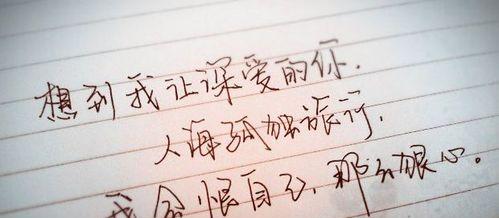 想到我让深爱的你.
人海孤独旅行.
我会恨自己.那么狠心.